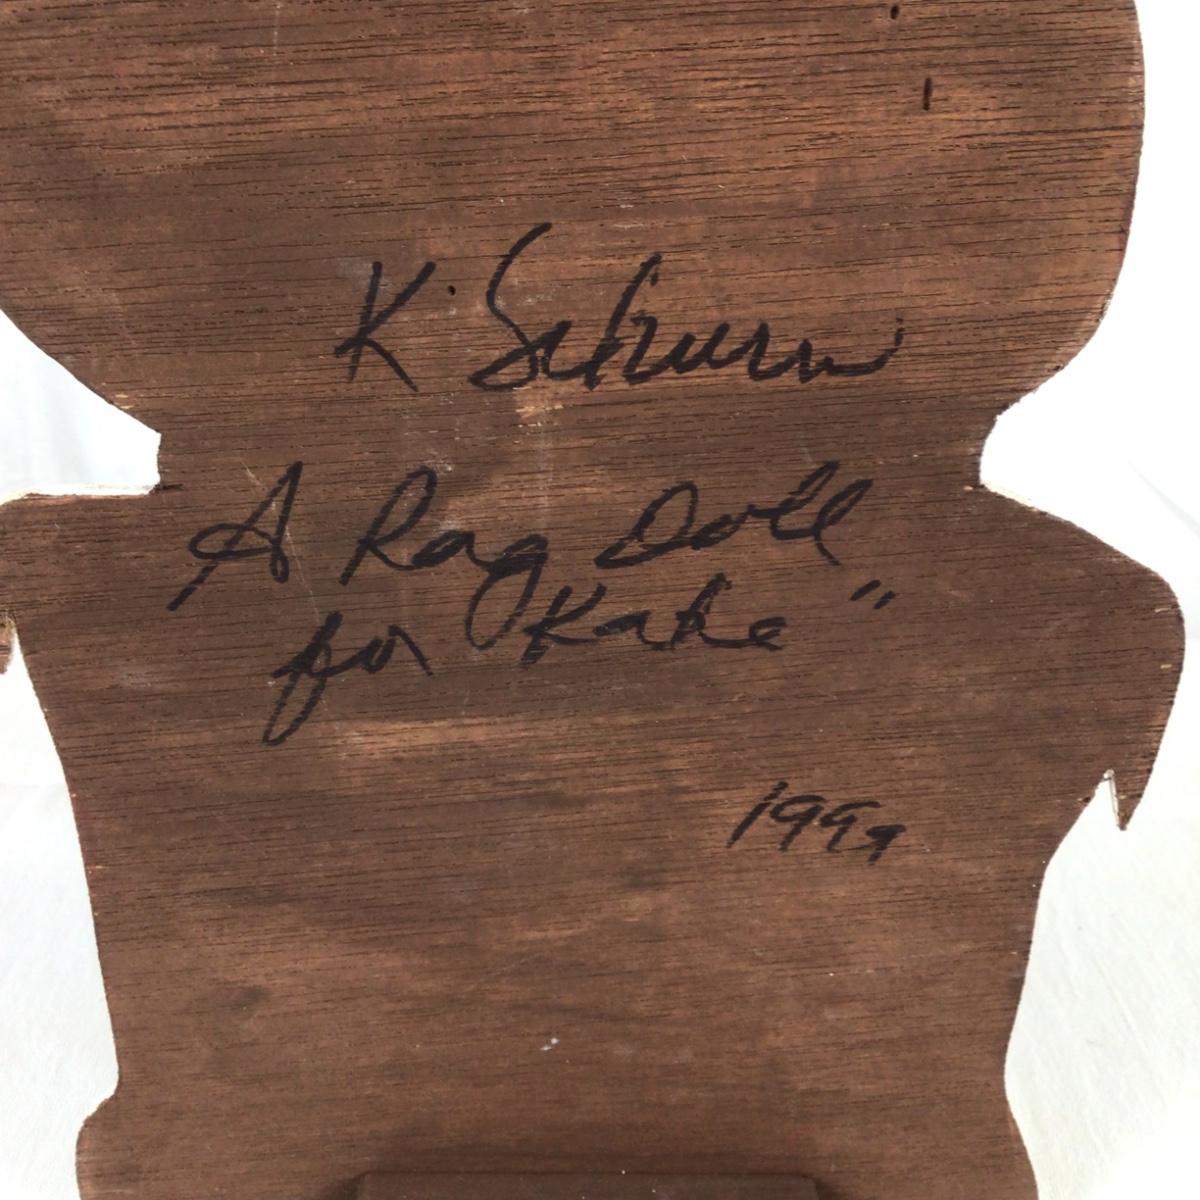 K
A Rag Doll
for Katie"
1999